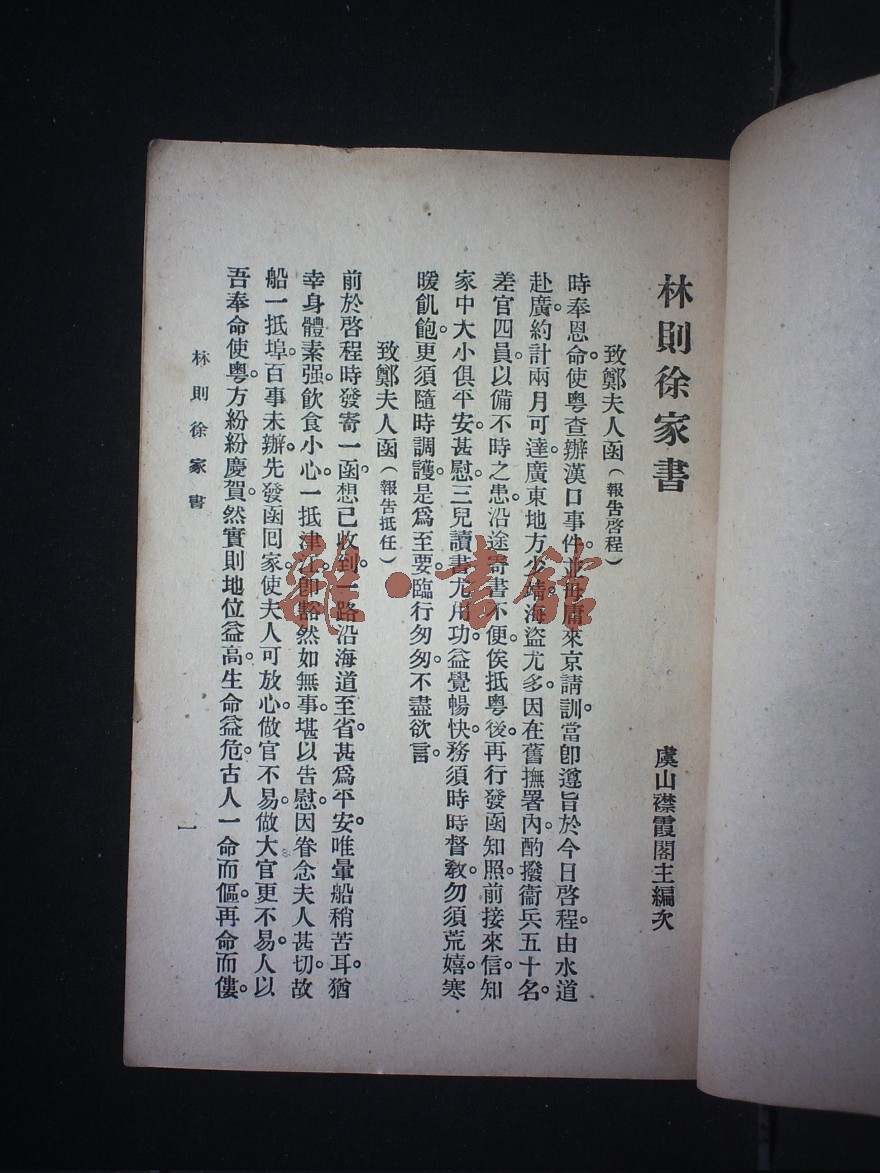 林則徐家書
虞山襟霞閣主編次
致鄭夫人函（報告啓程）
時奉恩命。使粵查辦漢口事件。並毋庸來京請訓。當卽遵旨於今日啓程。由水道
赴廣。約計兩月可達。廣東地方少靖。海盜尤多。因在舊撫署內。酌撥衞兵五十名。
差官四員。以備不時之患。沿途寄書不便。俟抵粵後。再行發函知照。前接來信。知
家中大小俱平安。甚慰。三兒讀書尤用功。益覺暢快。務須時時督敎。勿須荒嬉。寒
暖飢飽。更須隨時調護。是爲至要。臨行匆匆。不盡欲言。
致鄭夫人函（報告抵任）
前於啓程時發寄一函。想已收到。一路沿海道至省。甚爲平安。唯暈船稍苦耳。猶
幸身體素强。飮食小心。一抵津江。卽豁然如無事。堪以告慰。因眷念夫人甚切。故
船一抵埠。百事未辦。先發函囘家。使夫人可放心。做官不易。做大官更不易。人以
吾奉命使粵。方紛紛慶賀。然實則地位益高。生命益危。古人一命而傴。再命而僂。
林則徐家書
一
雜·書館